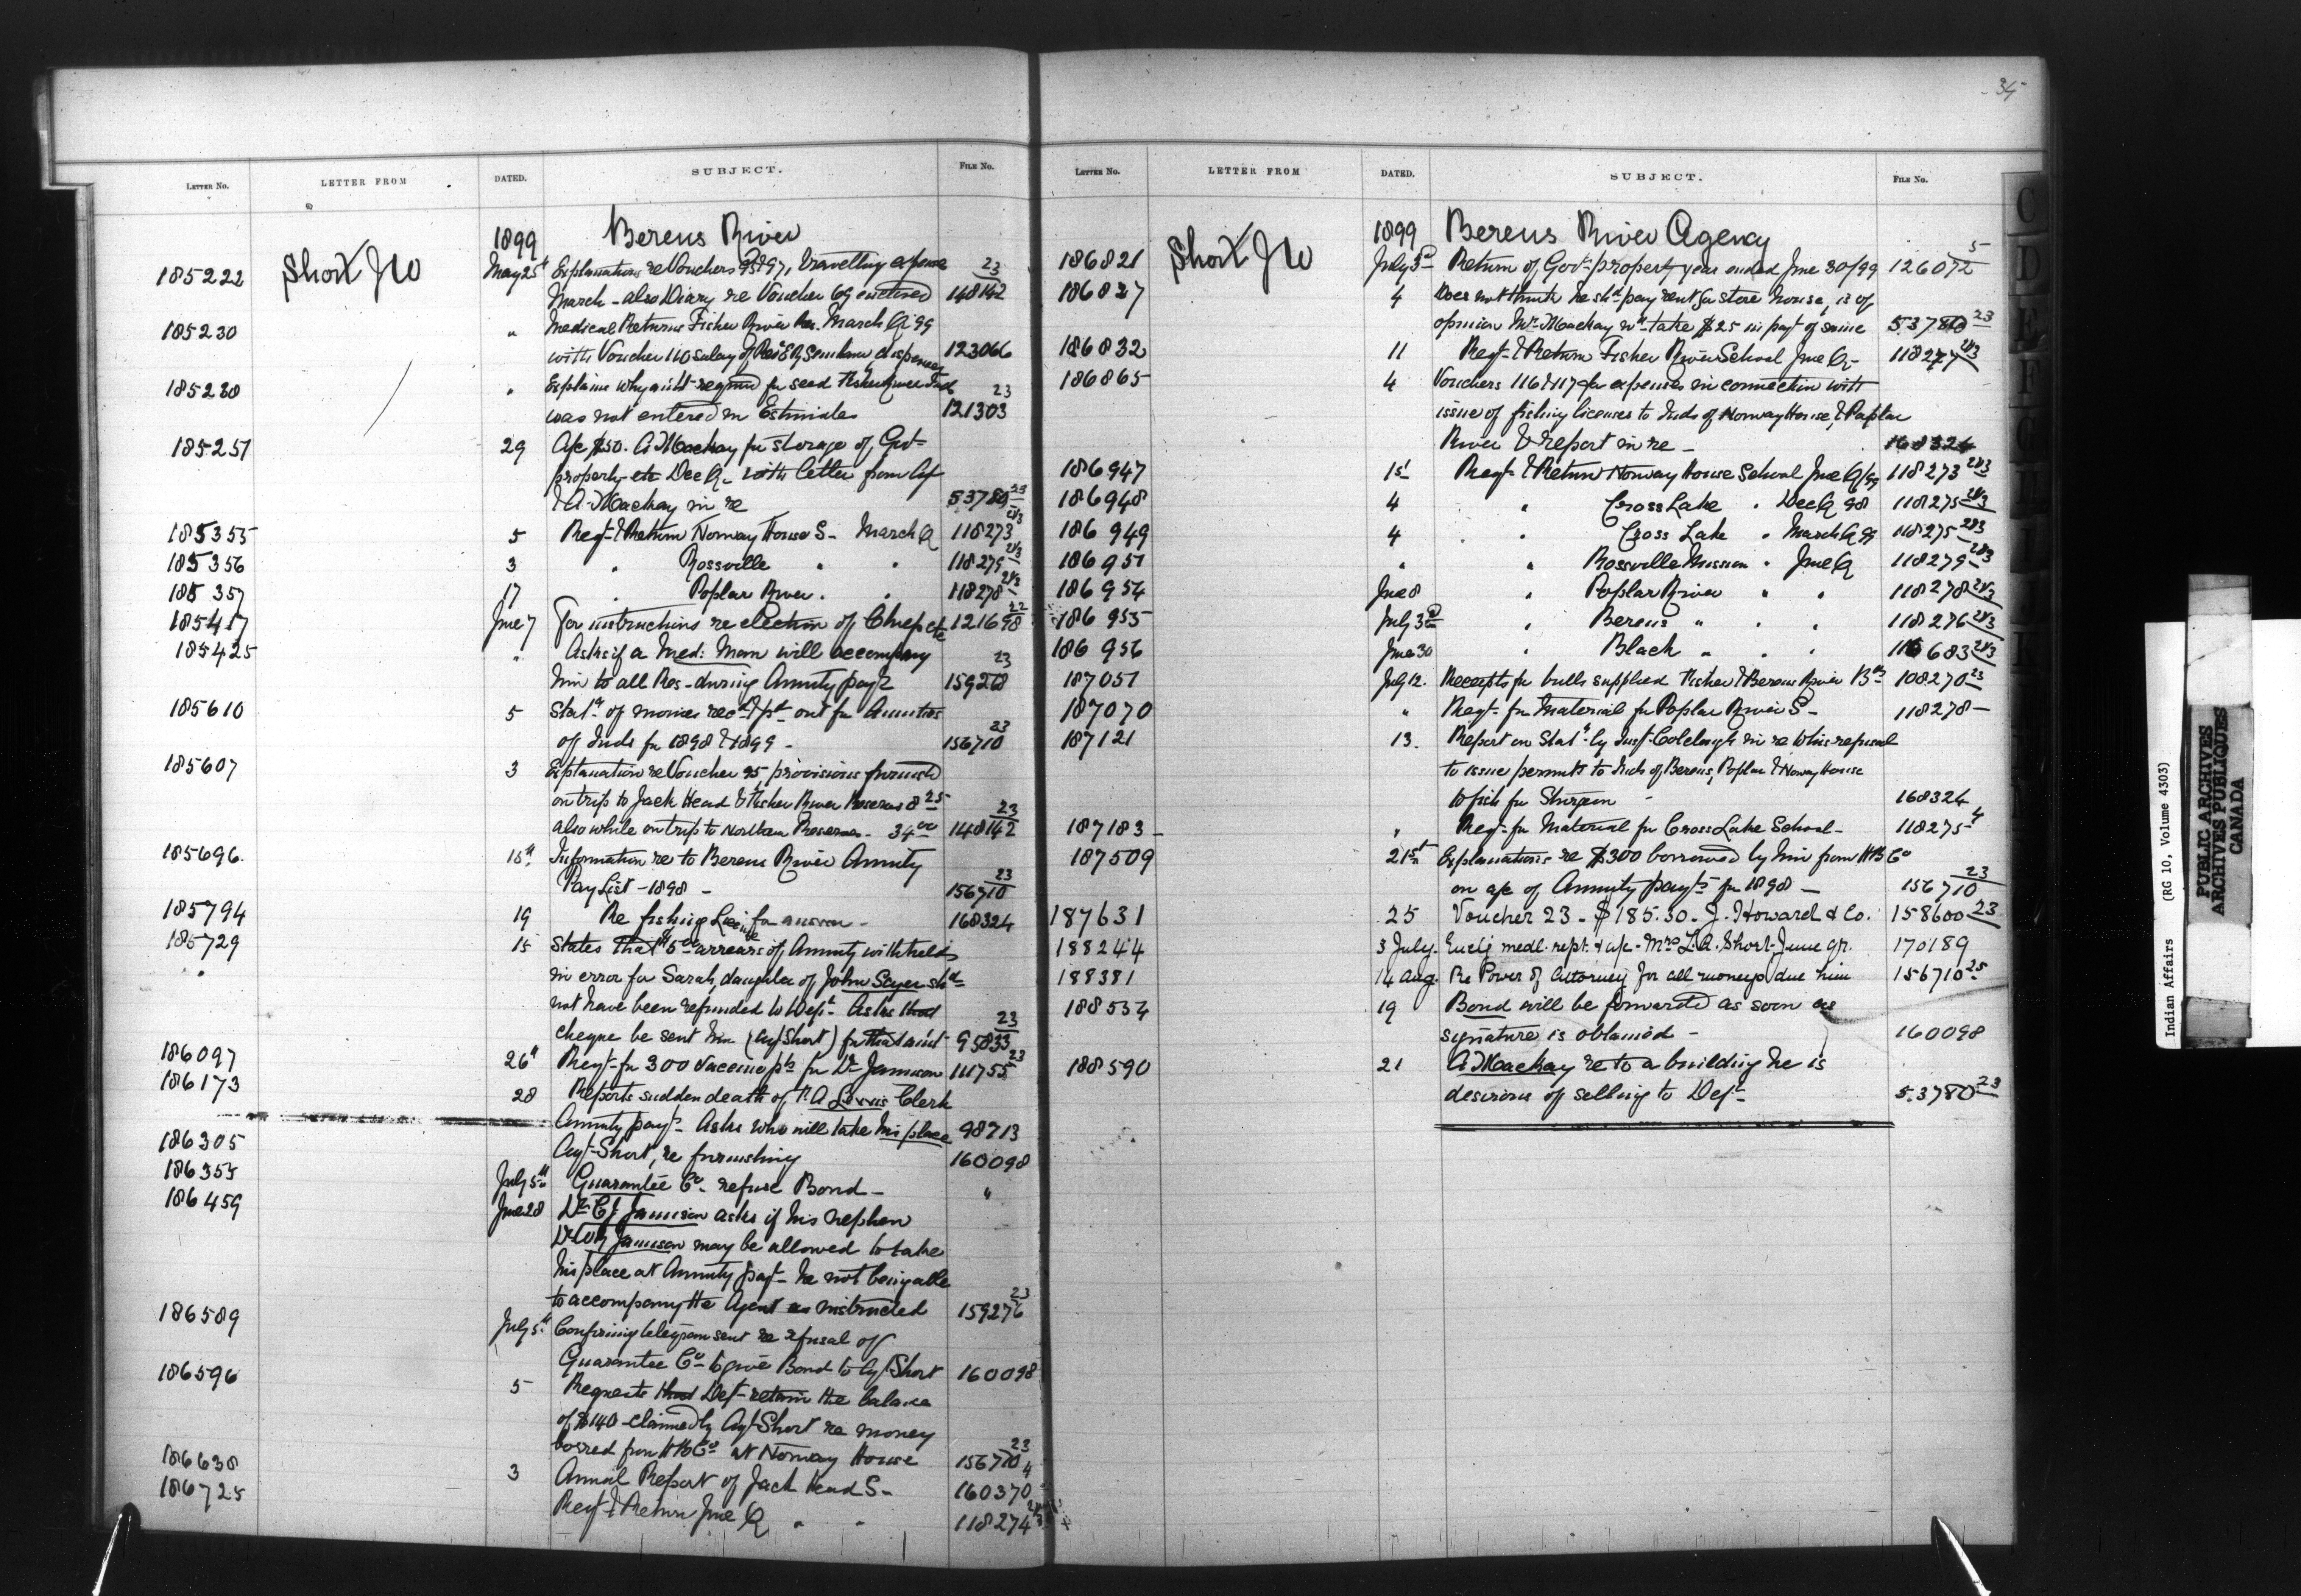 34
LETTER NO. LETTER FROM DATED. SUBJECT. FILE NO.
1899 Berens River
185222 Short J W May 25th Explanations re Vouchers 95 & 97, travelling expense 23
March - also Diary re Voucher 69 enclosed 148142
185230 " Medical Returns Fisher River Res. March Q 99
with Voucher 110 salary of Rev E R dispenser 123066
185230 " Explains why amt required for seed Fisher River Inds 23
was not entered in Estimates 121303
185251 29 A/c $50. A Mackay for storage of Govt
property etc Dec Q. with letter from Agt
& A. Mackay in re 53780 23
185355 5 Reqt & Return Norway House S- March Q 118273 2/3
185356 3 " Rossville " " 118279 2/3
185357 17 " Poplar River " " 118278 2/3
185417 June 7 For instructions re election of Chief etc 121698 22
185425 " Asks if a Med: Man will accompany 23
him to all Res- during Annuity payts 159276
185610 5 Statt of monies recd & pd out for Annuities 23
of Inds for 1898 & 1899 - 156710
185607 3 Explanation re Voucher 95 provisions furnished
on trip to Jack Head & Fisher River Reserves 8 25 23
also while on trip to Northern Reserves - 34 00 148142
185696 15th Information re to Berens River Annuity 23
Pay List - 1898 - 156710
185794 19 Re fishing License for answer - 168324
185729 15 States that $5 00 arrears of Annuity withheld
in error for Sarah, daughter of John Sayer shd
not have been refunded to Dept. Asks that 23
cheque be sent him (Agt Short) for that amt 95833
186097 26th Reqt for 300 vaccine pts for Dr Jamieson 111755 23
186173 28 Reports sudden death of Clerk
Annuity payt- Asks who will take his place 98713
186305 Agt Short, re furnishing 160098
186355 July 5th Guarantee Co. refuse Bond - "
186459 June 28 Dr C J Jamieson asks if his nephew
Jamieson may be allowed to take
his place at Annuity payt- he not being able
to accompany the Agent as instructed 159276 23
186589 July 5th Confirming telegram sent re refusal of
Guarantee Co- to give Bond to Agt Short 160098
186596 5 Requests that Dept- retain the balance
of $140 claimed by Agt Short re money
borred from H B Co at Norway House 156710 23
186638 3 Annual Report of Jack Head S- 160370 4
186725 Reqt & Return June Q " " 118274 2/3
LETTER NO. LETTER FROM DATED. SUBJECT. FILE NO.
1899 Berens River Agency
186821 Short J W July 3d Return of Govt property year ended June 30/99 126072 5
186827 4 Does not think he shd pay rent for store house, is of
opinion Mr Mackay wd take $25 in payt of same 53780 23
186832 11 Reqt- & Return Fisher River School June Q - 118277 2/3
186865 4 Vouchers 116 & 117 for expenses in connection with
issue of fishing licenses to Inds of Norway House, & Poplar
River & report in re - 168324
186947 15 Reqt- & Return Norway House School June Q/99 118273 2/3
186948 4 " Cross Lake " Dec Q 98 118275 2/3
186949 4 " " Cross Lake " March Q 99 118275 2/3
186951 " " Rossville Mission " June Q 118279 2/3
186954 June 8 " Poplar River " " 118278 2/3
186955 July 3d " Berens " " " 118276 2/3
186956 June 30 " Black " " " 116683 2/3
187051 July 12. Receipts for bulls supplied Fisher & Berens River Bds 108270 23
187070 " Reqt- for Material for Poplar River S- 118278
187121 13. Report on Statt by Inst- Colcleugh in re to his refusal
to issue permits to Inds of Berens, Poplar & Norway House
to fish for Sturgeon - 168324
187183 " Reqt- for Material for Cross Lake School- 118275 4
187509 21st Explanations re $300 borrowed by him from H B Co
on a/c of Annuity payts for 1898 - 156710 23
187631 25 Voucher 23 - $185.30 - J. Howard & Co. 158600 23
188244 3 July. Encls medl. rept. & a/c - Mrs L. A. Short - June qr. 170189
188381 14 Aug. Re Power of Attorney for all moneys due him 156710 25
188534 19 Bond will be forwarded as soon as
signature is obtained - 160098
188590 21 A Mackay re to a building he is
desirous of selling to Dept- 53780 23
C
D
E
F
G
Indian Affairs (RG 10, Volume 4303)
PUBLIC ARCHIVES
ARCHIVES PUBLIQUES
CANADA